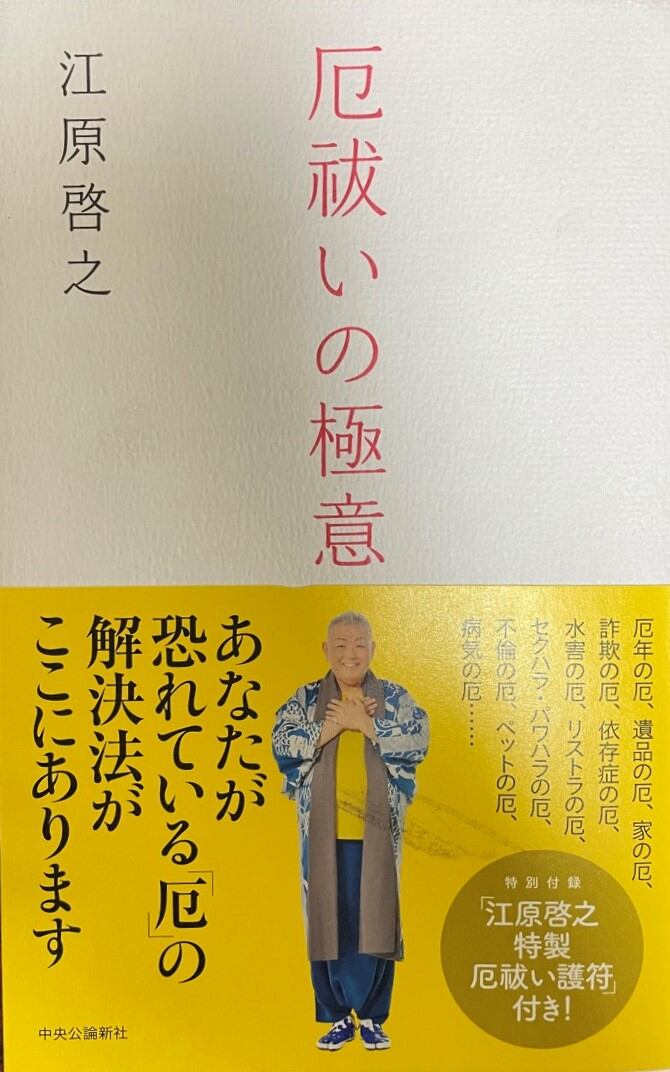 厄祓いの極意
江原啓之
厄年の厄、遺品の厄、家の厄、
詐欺の厄、依存症の厄、
水害の厄、リストラの厄、
セクハラ・パワハラの厄、
不倫の厄、ペットの厄、
病気の厄……
あなたが
恐れている「厄」の
解決法が
ここにあります
特別付録
「江原啓之
特製
厄祓い護符」
付き!
中央公論新社